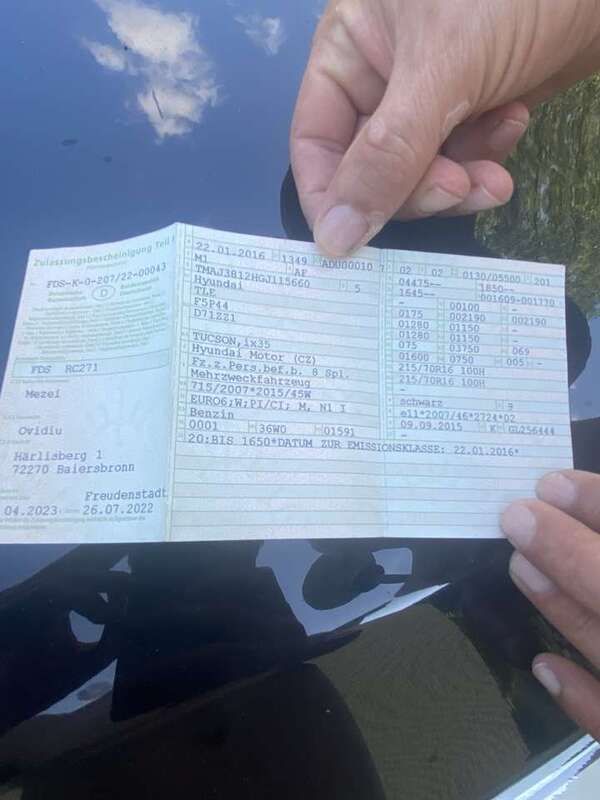 Zulassungsbescheinigung Teil I
FDS-K-0-207/22-00043
D
FDS RC271
Mezei
Ovidiu
Härlisberg 1
72270 Baiersbronn
Freudenstadt
04.2023
26.07.2022
22.01.2016 1349 ADU00010 7
M1 AF
TMAJ3812HGJ115660 5
Hyundai
TLE
F5P44
D71ZZ1
TUCSON,ix35
Hyundai Motor (CZ)
Fz.z.Pers.bef.b. 8 Spl.
Mehrzweckfahrzeug
715/2007*2015/45W
EURO6;W;PI/CI; M, N1 I
Benzin
0001 36W0 01591
20:BIS 1650*DATUM ZUR EMISSIONSKLASSE: 22.01.2016*
02 02 0130/05500 201
04475-- 1850--
1645-- 001609-001770
- 00100 -
0175 002190 002190
01280 01150 -
01280 01150 -
075 03750 069
01600 0750 005--
215/70R16 100H
215/70R16 100H
-
schwarz 9
e11*2007/46*2724*02
09.09.2015 K GL256444
-